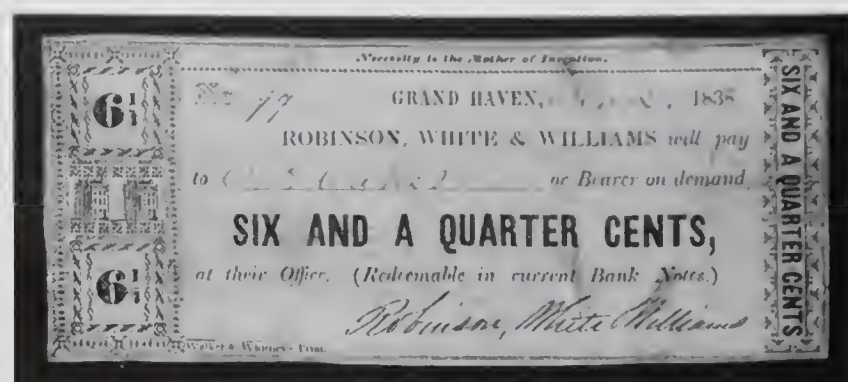 Necessity is the Mother of Invention.
6 1/4
No 17
GRAND HAVEN, 1838
ROBINSON, WHITE & WILLIAMS will pay
to or Bearer on demand
SIX AND A QUARTER CENTS,
at their Office. (Redeemable in current Bank Notes.)
6 1/4
Robinson, White Williams
Print.
SIX AND A QUARTER CENTS